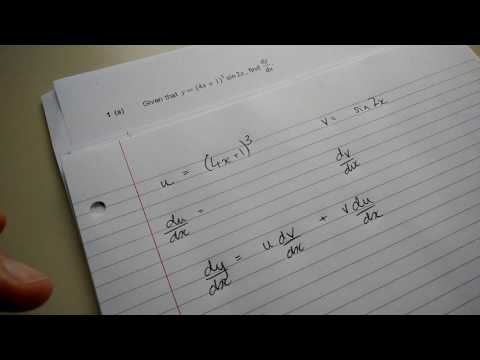 1 (a) Given that y = (4x + 1)³ sin 2x, find dy/dx
u = (4x+1)³ v = sin 2x
du/dx = dv/dx
dy/dx = u dv/dx + v du/dx